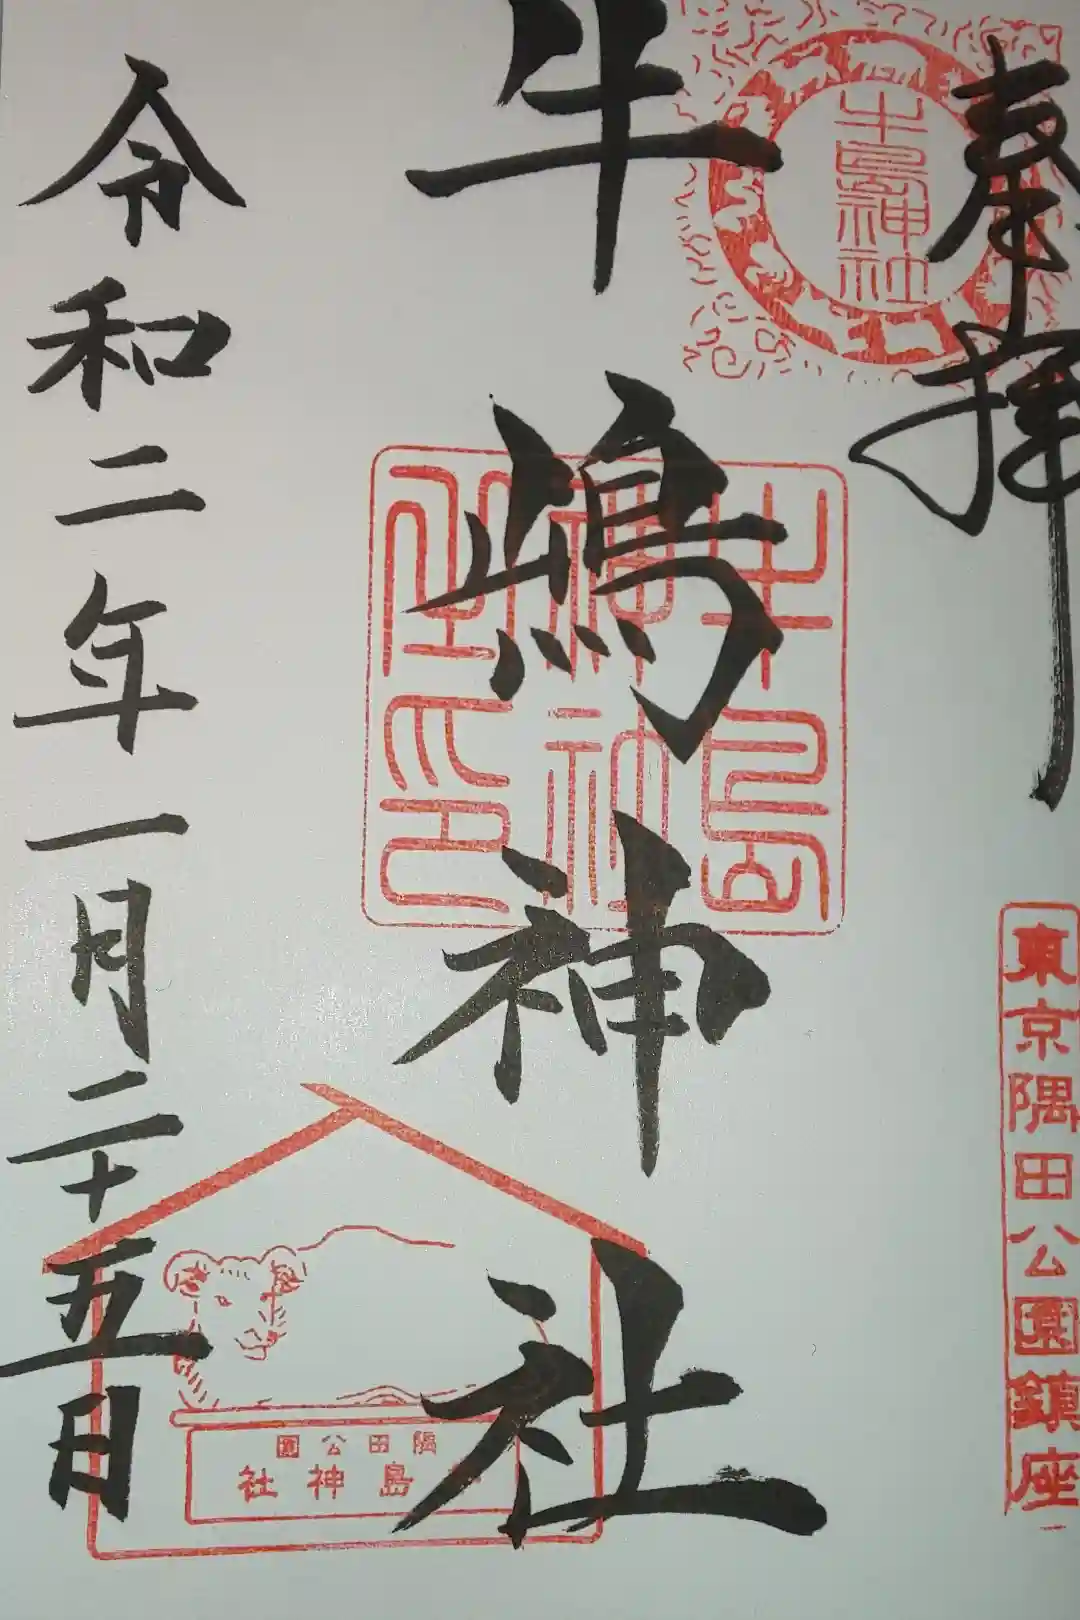 奉拝
牛島神社
東京隅田公園鎮座
牛嶋神社
牛島神社印
隅田公園
島神社
令和二年一月二十五日